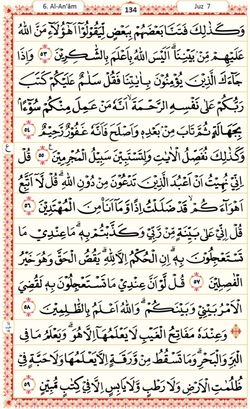 6. Al-An'âm
134
Juz 7
وَكَذٰلِكَ فَتَنَّا بَعْضَهُمْ بِبَعْضٍ لِّيَقُوْلُوْۤا اَهٰۤؤُلَآءِ مَنَّ اللّٰهُ
عَلَيْهِمْ مِّنْۢ بَيْنِنَا ؕ اَلَيْسَ اللّٰهُ بِاَعْلَمَ بِالشّٰكِرِيْنَ ﴿٥٣﴾ وَاِذَا
جَآءَكَ الَّذِيْنَ يُؤْمِنُوْنَ بِاٰيٰتِنَا فَقُلْ سَلٰمٌ عَلَيْكُمْ كَتَبَ
رَبُّكُمْ عَلٰى نَفْسِهِ الرَّحْمَةَ ۙ اَنَّهٗ مَنْ عَمِلَ مِنْكُمْ سُوْٓءًۢا
بِجَهَالَةٍ ثُمَّ تَابَ مِنْۢ بَعْدِهٖ وَاَصْلَحَ فَاَنَّهٗ غَفُوْرٌ رَّحِيْمٌ ﴿٥٤﴾
وَكَذٰلِكَ نُفَصِّلُ الْاٰيٰتِ وَلِتَسْتَبِيْنَ سَبِيْلُ الْمُجْرِمِيْنَ ﴿٥٥﴾ قُلْ
اِنِّيْ نُهِيْتُ اَنْ اَعْبُدَ الَّذِيْنَ تَدْعُوْنَ مِنْ دُوْنِ اللّٰهِ ؕ قُلْ لَّآ اَتَّبِعُ
اَهْوَآءَكُمْ ۙ قَدْ ضَلَلْتُ اِذًا وَّمَآ اَنَا مِنَ الْمُهْتَدِيْنَ ﴿٥٦﴾
قُلْ اِنِّيْ عَلٰى بَيِّنَةٍ مِّنْ رَّبِّيْ وَكَذَّبْتُمْ بِهٖ ؕ مَا عِنْدِيْ مَا
تَسْتَعْجِلُوْنَ بِهٖ ؕ اِنِ الْحُكْمُ اِلَّا لِلّٰهِ ؕ يَقُصُّ الْحَقَّ وَهُوَ خَيْرُ
الْفٰصِلِيْنَ ﴿٥٧﴾ قُلْ لَّوْ اَنَّ عِنْدِيْ مَا تَسْتَعْجِلُوْنَ بِهٖ لَقُضِيَ
الْاَمْرُ بَيْنِيْ وَبَيْنَكُمْ ؕ وَاللّٰهُ اَعْلَمُ بِالظّٰلِمِيْنَ ﴿٥٨﴾
وَعِنْدَهٗ مَفَاتِحُ الْغَيْبِ لَا يَعْلَمُهَآ اِلَّا هُوَ ؕ وَيَعْلَمُ مَا فِي
الْبَرِّ وَالْبَحْرِ ؕ وَمَا تَسْقُطُ مِنْ وَّرَقَةٍ اِلَّا يَعْلَمُهَا وَلَا حَبَّةٍ فِيْ
ظُلُمٰتِ الْاَرْضِ وَلَا رَطْبٍ وَّلَا يَابِسٍ اِلَّا فِيْ كِتٰبٍ مُّبِيْنٍ ﴿٥٩﴾